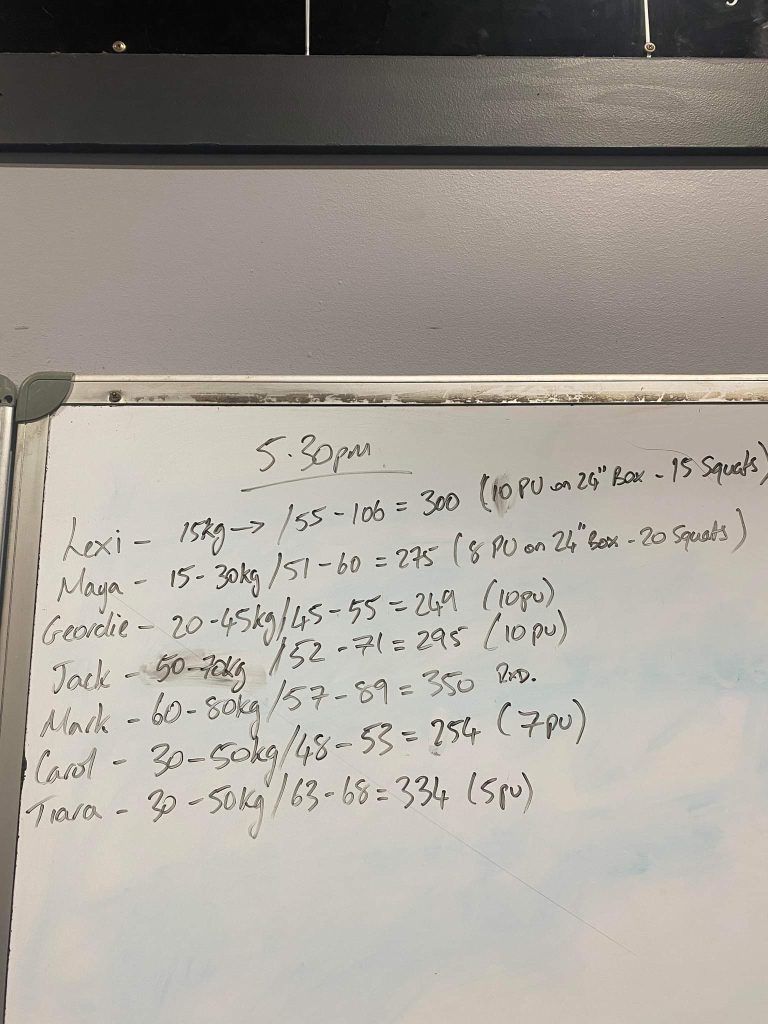 5.30pm
Lexi - 15kg → /55 - 106 = 300 (10 PU on 24" Box - 15 Squats)
Maya - 15-30kg /51 - 60 = 275 (8 PU on 24" Box - 20 Squats)
Geordie - 20-45kg/45 - 55 = 249 (10pu)
Jack - 50-70kg /52 - 71 = 295 (10 pu)
Mark - 60-80kg /57 - 89 = 350 RxD.
Carol - 30-50kg/48 - 53 = 254 (7pu)
Tiara - 30-50kg /63 - 68 = 334 (5pu)